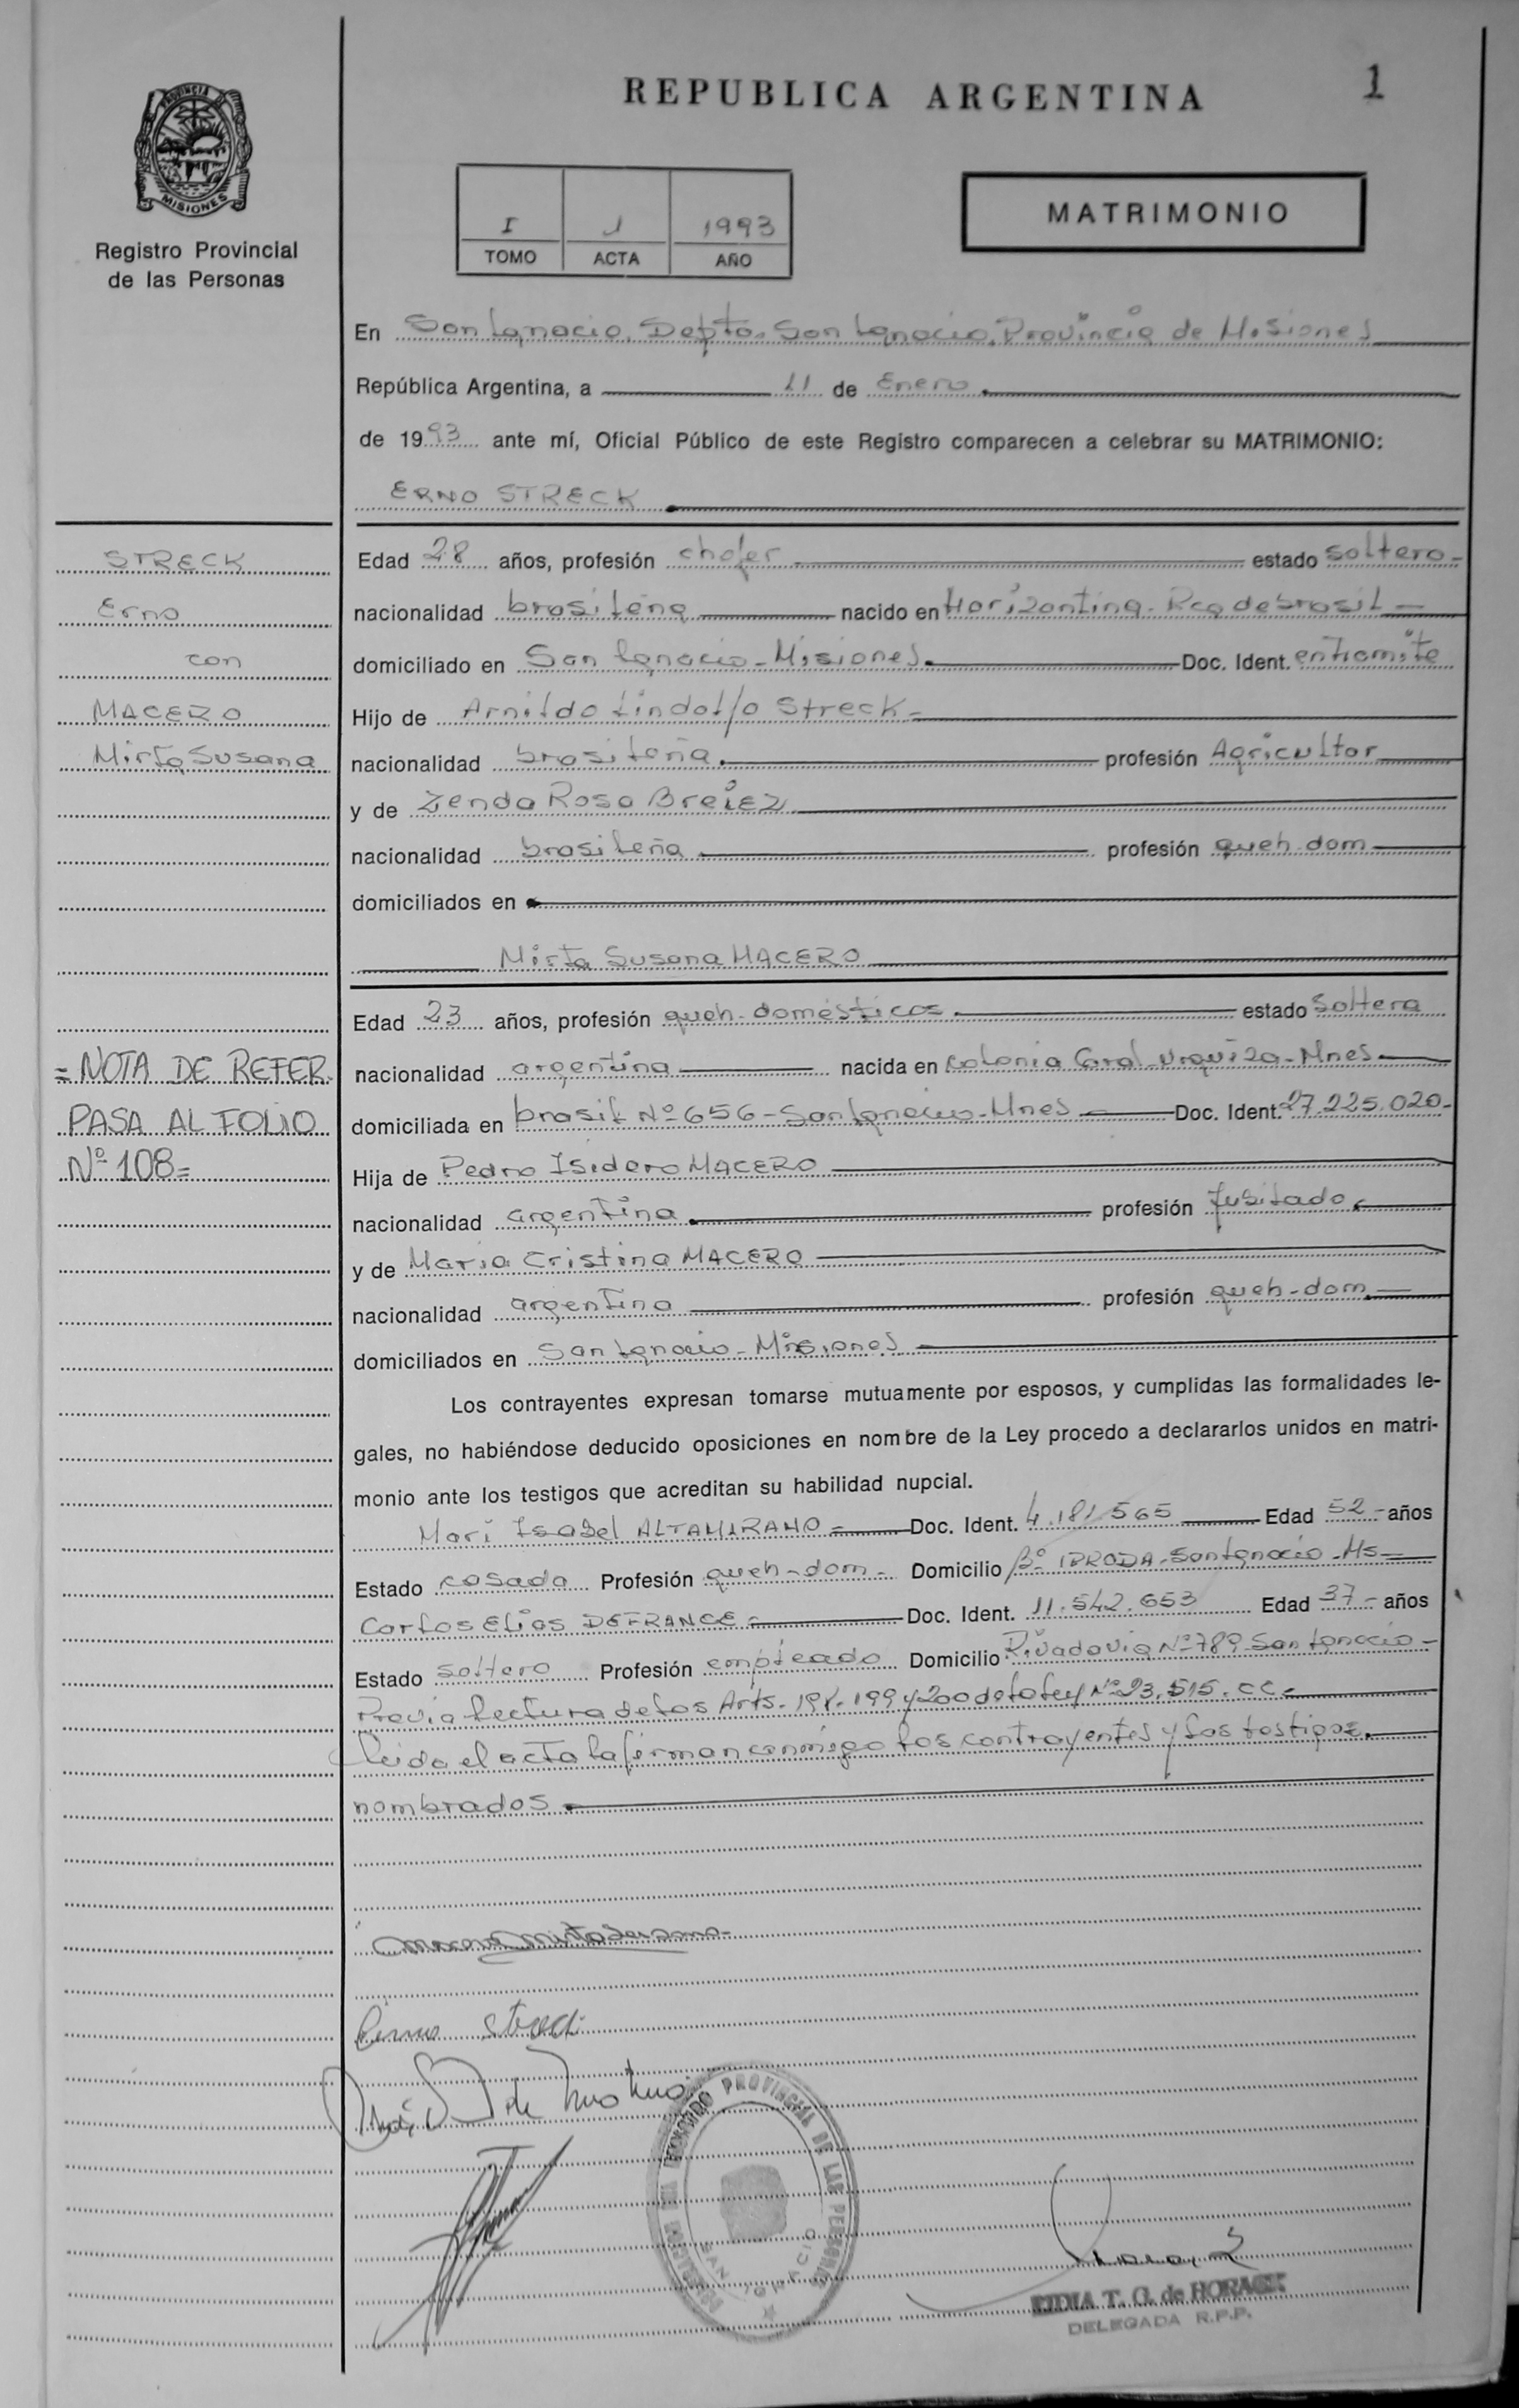 REPUBLICA ARGENTINA
1
PROVINCIA DE
MISIONES
Registro Provincial
de las Personas
I J 1993
TOMO ACTA AÑO
MATRIMONIO
En San Ignacio, Depto. San Ignacio, Provincia de Misiones
República Argentina, a 11 de Enero
de 1993 ante mí, Oficial Público de este Registro comparecen a celebrar su MATRIMONIO:
ERNO STRECK
STRECK
Erno
con
MACERO
Mirta Susana
Edad 28 años, profesión chofer estado soltero
nacionalidad brasileña nacido en Horizontina - Rca de brasil
domiciliado en San Ignacio - Misiones Doc. Ident. entramite
Hijo de Arnildo Lindolfo Streck
nacionalidad brasileña profesión Agricultor
y de Zenda Rosa
nacionalidad brasileña profesión queh dom
domiciliados en
Mirta Susana MACERO
Edad 23 años, profesión queh-domésticos estado Soltera
= NOTA DE REFER.
PASA AL FOLIO
Nº 108 =
nacionalidad argentina nacida en Colonia Gral Urquiza - Mnes
domiciliada en brasil Nº 656 - San Ignacio - Mnes Doc. Ident. 27.225.020
Hija de Pedro Isidero MACERO
nacionalidad argentina profesión Jubilado
y de Maria Cristina MACERO
nacionalidad argentina profesión queh-dom
domiciliados en San Ignacio - Misiones
Los contrayentes expresan tomarse mutuamente por esposos, y cumplidas las formalidades le-
gales, no habiéndose deducido oposiciones en nombre de la Ley procedo a declararlos unidos en matri-
monio ante los testigos que acreditan su habilidad nupcial.
Mari Isabel ALTAMIRANO Doc. Ident. 4.181.565 Edad 52 años
Estado casada Profesión queh-dom Domicilio Bº IPRODA - San Ignacio - Ms
Carlos Elias DEFRANCE Doc. Ident. 11.542.653 Edad 37 años
Estado soltero Profesión empleado Domicilio Rivadavia Nº 789 San Ignacio
Previa lectura de los Arts. 198. 199 y 200 de la ley Nº 23.515. CC.
leida el acta la firman conmigo los contrayentes y los testigos
nombrados
Macero Mirta Susana
Erno Streck
REGISTRO PROVINCIAL DE LAS PERSONAS
SAN IGNACIO
LIDIA T. G. de HORACK
DELEGADA R.P.P.